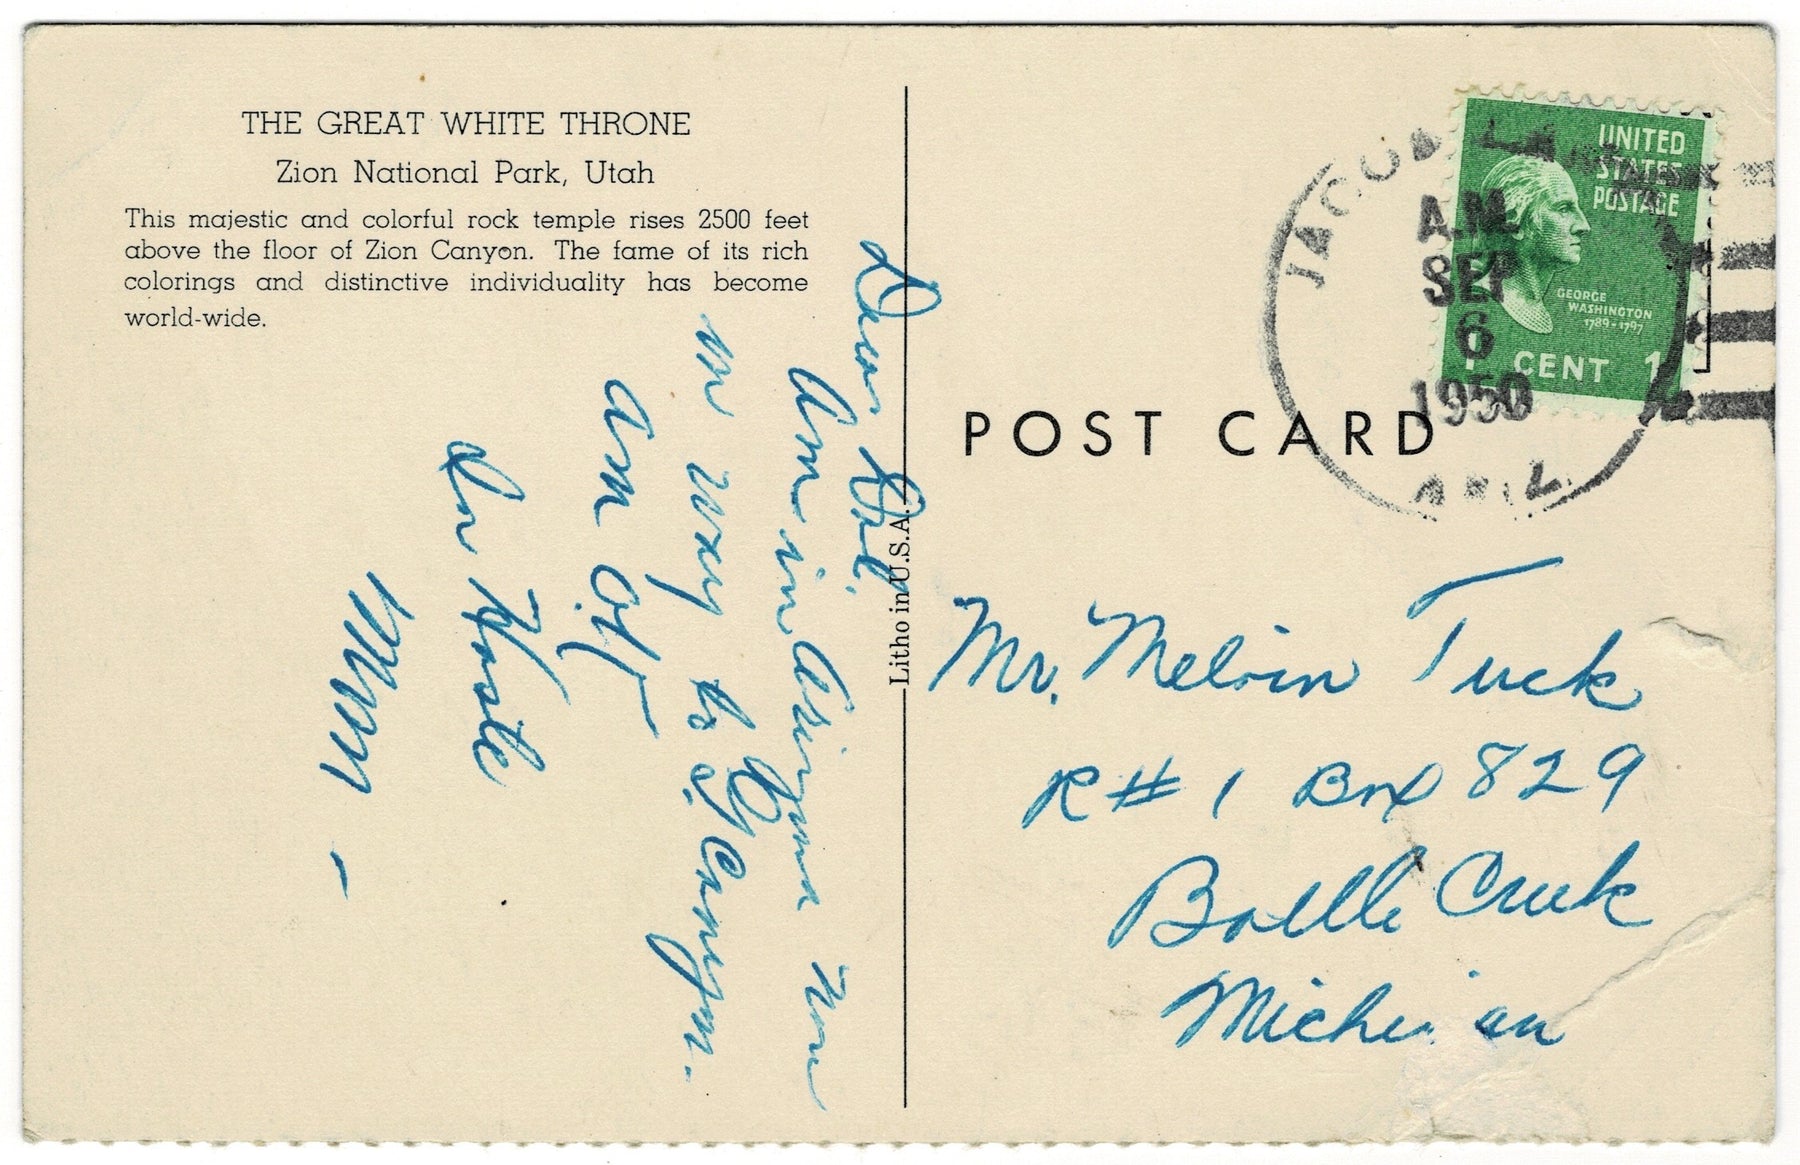 THE GREAT WHITE THRONE
Zion National Park, Utah
This majestic and colorful rock temple rises 2500 feet
above the floor of Zion Canyon. The fame of its rich
colorings and distinctive individuality has become
world-wide.
Dear
Am in Arizona now
on way to G. Canyon.
Am O.K.
In Haste
Mum -
Litho in U.S.A.
POST CARD
UNITED
STATES
POSTAGE
GEORGE
WASHINGTON
1789-1797
1 CENT 1
JACOB LAKE
A.M.
SEP
6
1950
ARIZ.
Mr. Melvin Tuck
R#1 Box 829
Battle Creek
Michi an